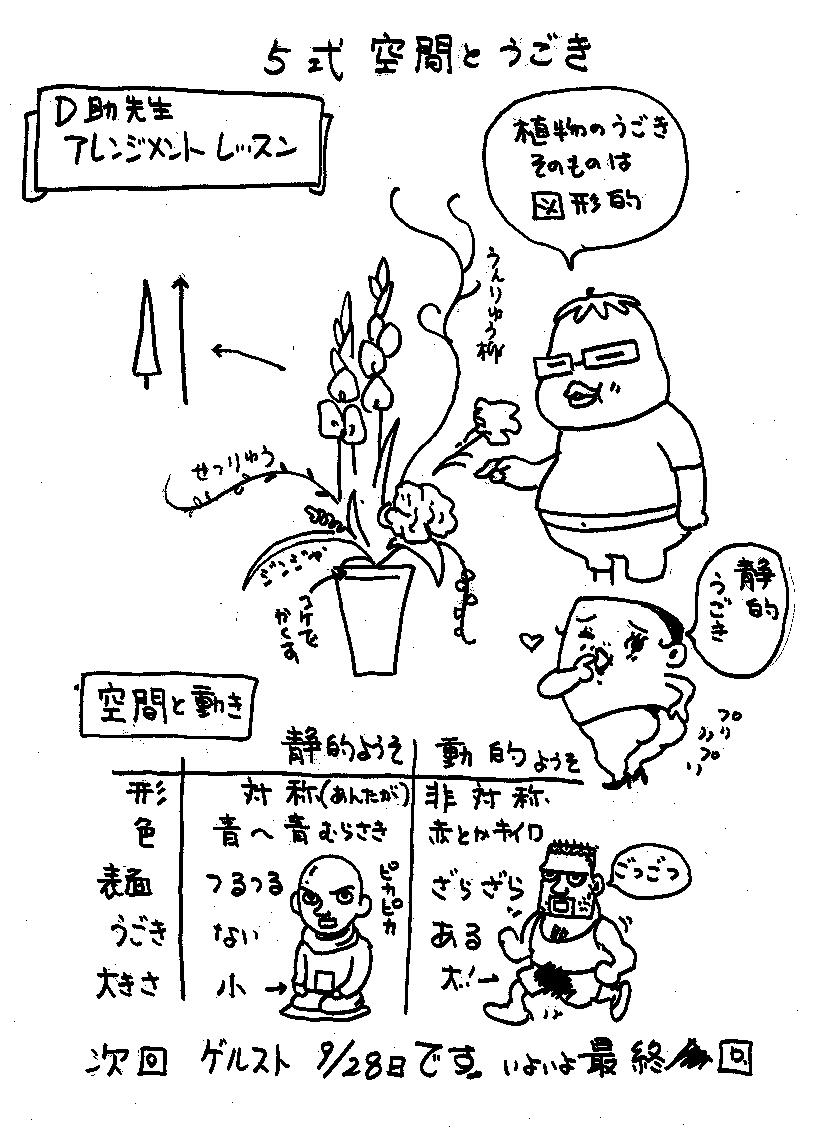 5式 空間とうごき
D助先生
アレンジメントレッスン
植物のうごき
そのものは
図形的
うんりゅう柳
せつりゅう
ジンジャ
コケで
かくす
静的
うごき
プリ
プリ
空間と動き
静的ようそ 動的ようそ
形 対称(あんたが) 非対称
色 青へ青むらさき 赤とかキイロ
表面 つるつる ざらざら
うごき ない ある
大きさ 小→ 大!→
ピカピカ
ごつごつ
次回 ゲルスト 9/28日です。いよいよ最終回